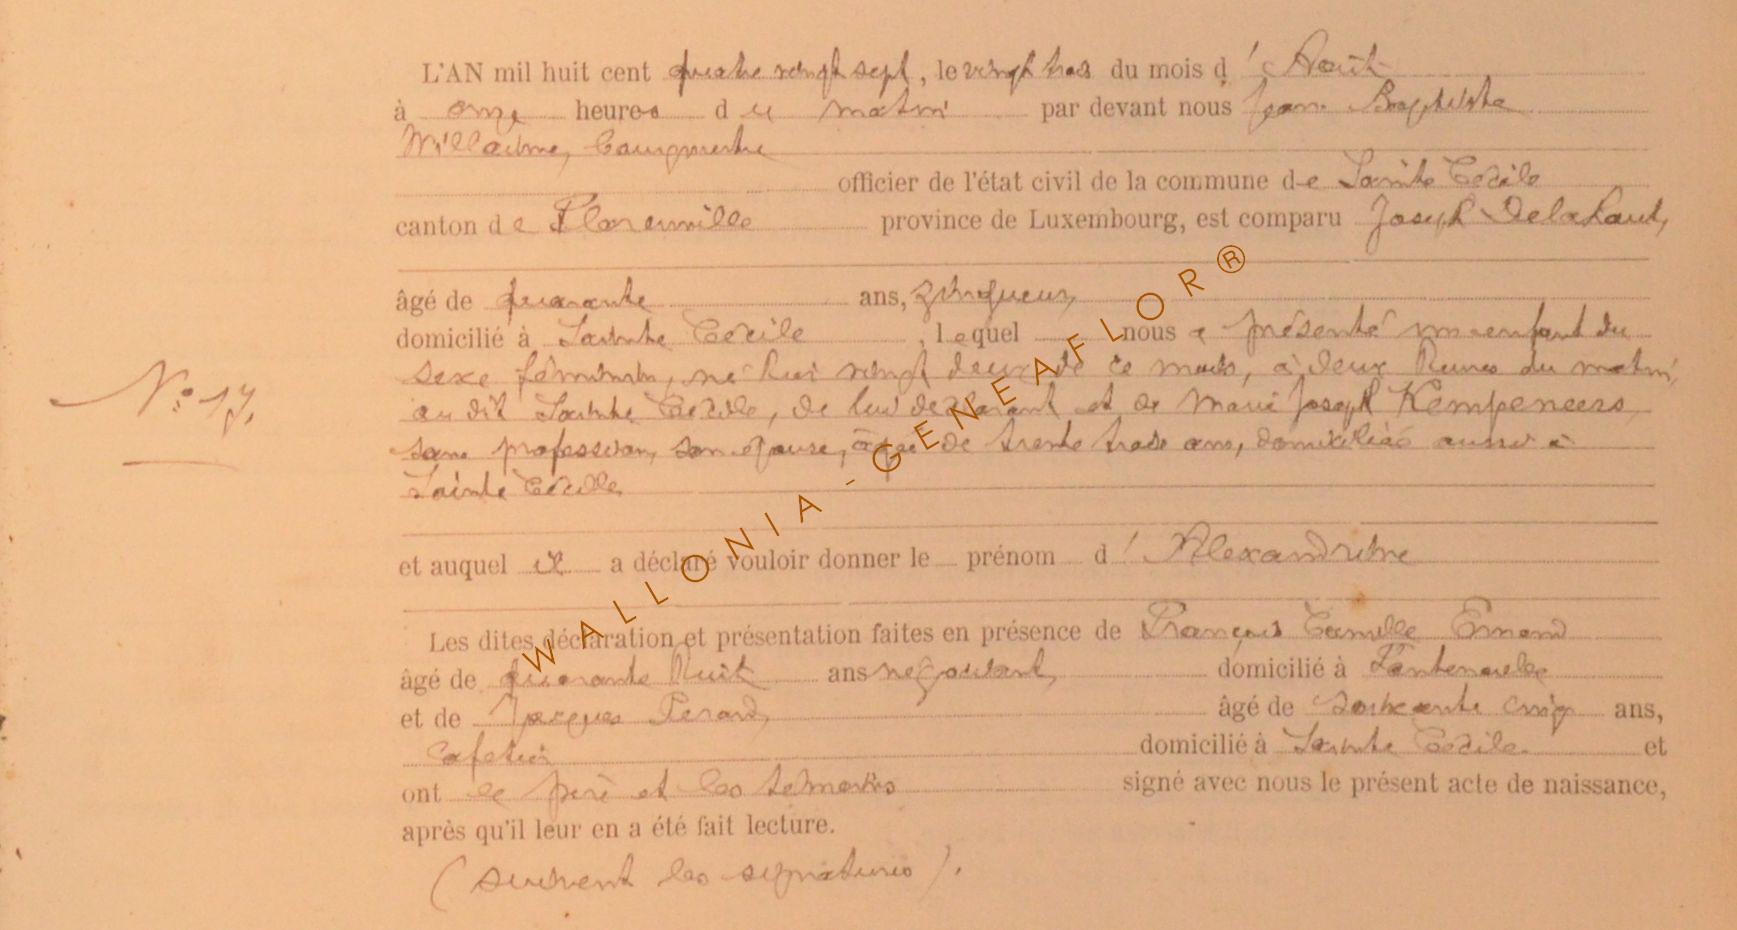 L'AN mil huit cent quatre vingt sept, le vingt trois du mois d'Août
à onze heures du matin par devant nous Jean Baptiste
Willaime, Bourgmestre
officier de l'état civil de la commune de Sainte Cécile
canton de Florenville province de Luxembourg, est comparu Joseph Delahaut,
âgé de quarante ans, zingueur,
domicilié à Sainte Cécile, lequel nous a présenté un enfant du
sexe féminin, né hier vingt deux de ce mois, à deux heures du matin,
N° 17.
au dit Sainte Cécile, de lui déclarant et de Marie Joseph Kempeneers
sans profession, son épouse, âgée de trente trois ans, domiciliée aussi à
Sainte Cécile
et auquel il a déclaré vouloir donner le prénom d'Alexandrine
Les dites déclaration et présentation faites en présence de François Camille Emond
âgé de quarante huit ans négociant, domicilié à Fontenoille
et de Jacques Perard, âgé de soixante cinq ans,
cafetier domicilié à Sainte Cécile. et
ont le père et les témoins signé avec nous le présent acte de naissance,
après qu'il leur en a été fait lecture.
(suivent les signatures).
WALLONIA - GENEAFLOR®